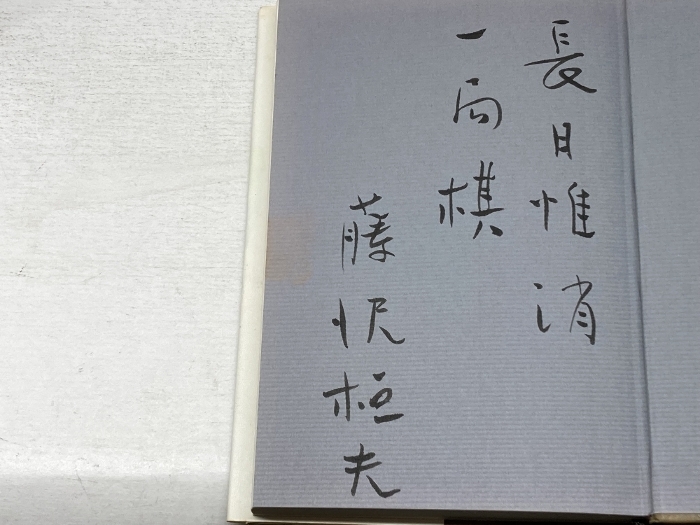 長日惟消
一局棋
藤沢桓夫